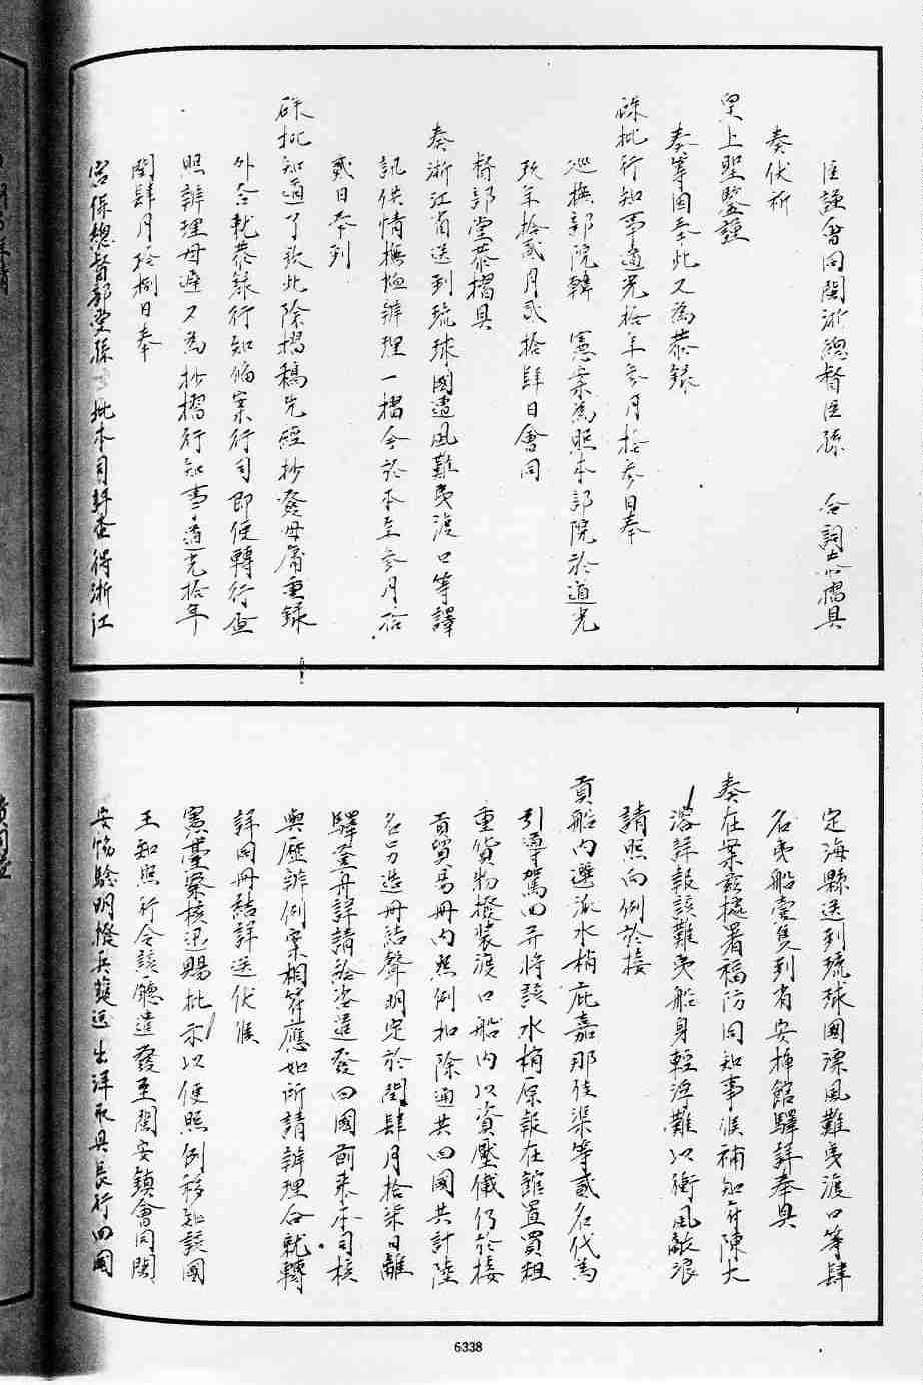 臣謹會同閩浙總督臣孫　合詞恭摺具
奏伏祈
皇上聖鑒謹
奏等因奉此又為恭錄
硃批行知事道光拾年叁月拾叁日奉
巡撫部院韓　憲案為照本部院於道光
玖年拾貳月貳拾肆日會同
督部堂恭摺具
奏浙江省送到琉球國遭風難夷渡口等譯
訊供情撫恤辦理一摺今於本年叁月拾
貳日奉到
硃批知道了欽此除摺稿先經抄發毋庸重錄
外合就恭錄行知備案行司即便轉行查
照辦理毋違又為抄摺行知事道光拾年
閏肆月拾捌日奉
宮保總督部堂孫　批本司詳查得浙江
定海縣送到琉球國漂風難夷渡口等肆
名夷船壹隻到省安插館驛詳奉具
奏在案茲據署福防同知事候補知府陳大
溶詳報該難夷船身輕浮難以衝風敵浪
請照向例於接
貢船內選派水梢庇嘉那佳渠等貳名代為
引導駕回并將該水梢原報在館置買粗
重貨物撥裝渡口船內以資壓儎仍於接
貢貿易冊內照例扣除通共回國共計陸
名另造冊結聲明定於閏肆月拾柒日離
驛登舟詳請給咨遣發回國前來本司核
與歷辦例案相符應如所請辦理合就轉
詳同冊結詳送伏候
憲臺察核迅賜批示以便照例移知該國
王知照行令該廳遣發至閩安鎮會同閩
安協驗明撥兵護送出洋取具長行回國
6338